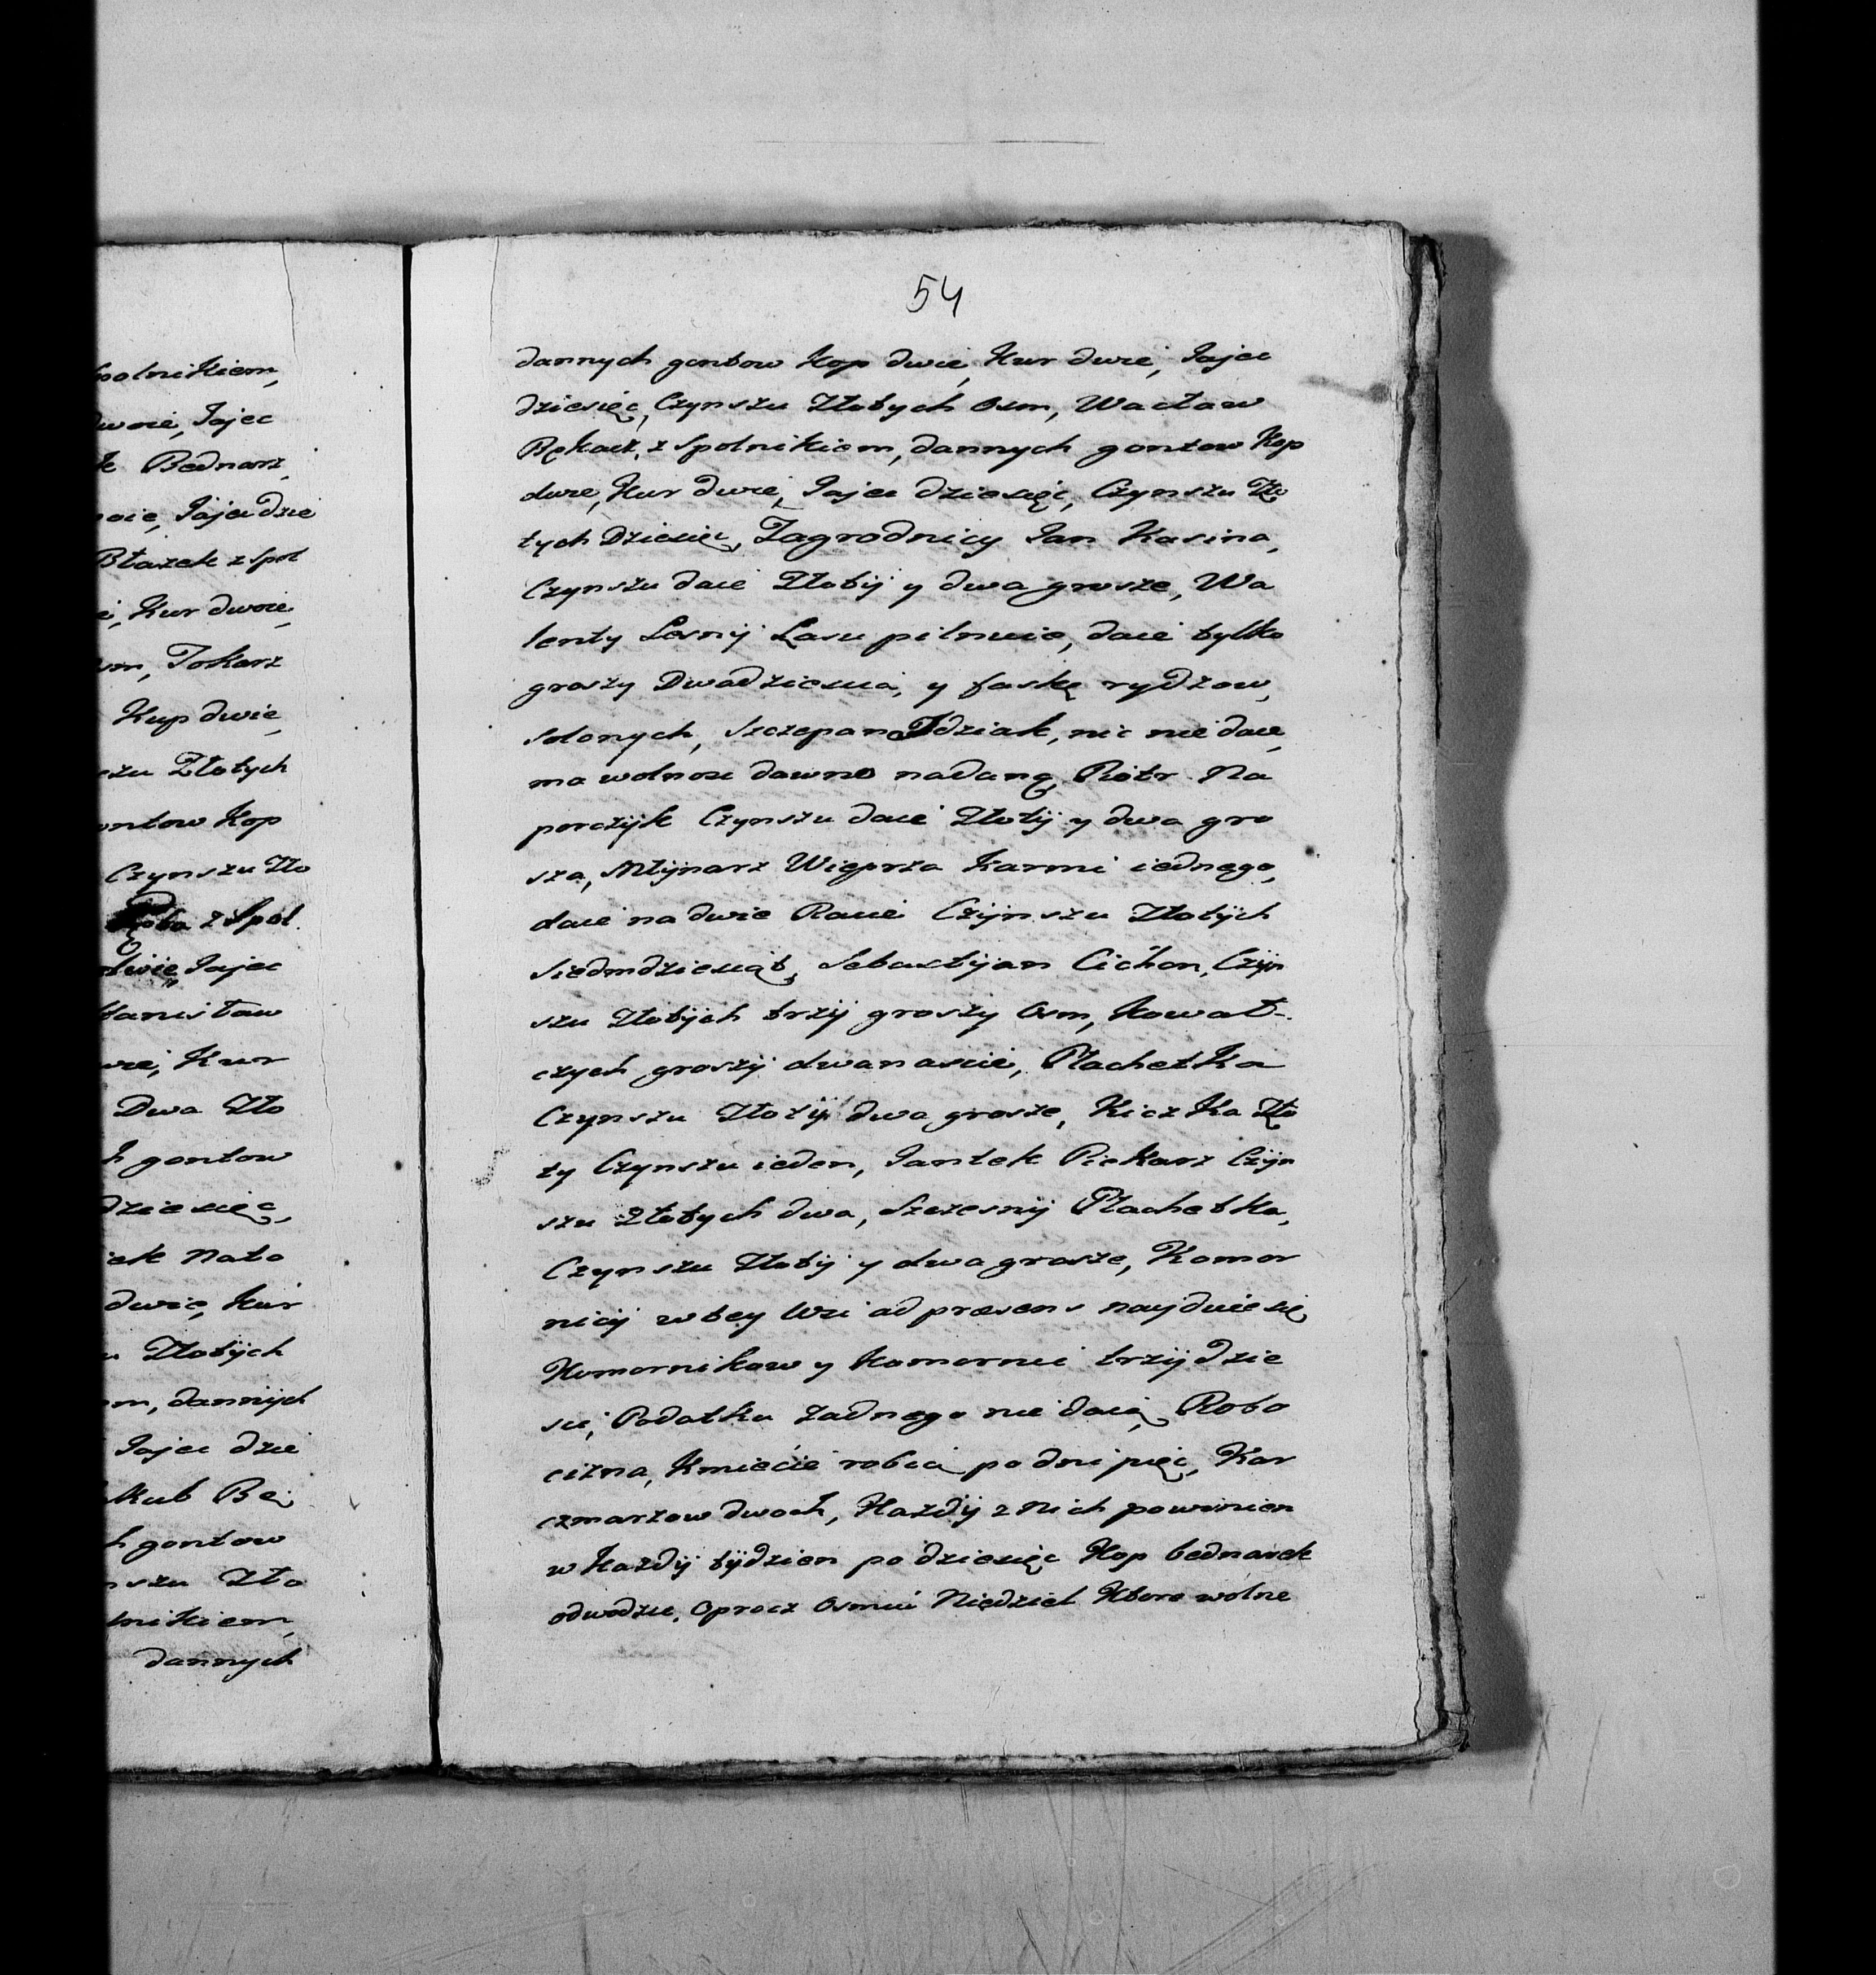 polnikiem,
dwoie, Jajec
k Bednarz,
woie, Jajec dzie
Błazek z Spol
i, Kur dwoie,
Tokarz
Kup dwie,
szu Złotych
ontow Kop
Czynszu Zło
z Spol.
dwie, Jajec
tanisław
wie, Kur
Dwa Zło
h gontow
dziesięc,
iek Nato
dwie, Kur
u Złotych
m, dannych
Jajec dzie
akub Bę
h gontow
nszu Zło
lnikiem,
dannych
54
dannych gontow Kop dwie, Kur dwie, Jajec
dziesięc, Czynszu Złotych Osm, Wacław
Bękacz, z Spolnikiem, dannych gontow Kop
dwie, Kur dwie, Jajec dziesięc, Czynszu Zło
tych Dziesięc, Zagrodnicy Jan Kasina,
Czynszu daie Złoty y dwa grosze, Wa
lenty Lesny Lasu pilnuie, daie tylko
groszy Dwadziescia, y faskę rydzow,
solonych, Szczepan Idziak, nic nie daie,
ma wolnosc dawno nadaną, Piotr Na
porczyk Czynszu daie Złoty y dwa gro
sza, Młynarz Wieprza Karmi iednego,
daie na dwie Racie Czynszu Złotych
Siedmdziesiąt, Sebastyan Cichon, Czyn
szu Złotych trzy groszy Osm, Kowal-
czych groszy dwanascie, Płachetka
Czynszu Złoty dwa grosze, Kiczka Zło
ty Czynszu ieden, Jantek Piekarz Czyn
szu Złotych dwa, Szczesny Płachetka,
Czynszu Złoty y dwa grosze, Komor
nicy w tey Wsi ad præsens nayduie się
Komornikow y Komornic trzydzie
sci, Podatku żadnego nie daią, Robo
cizna, Kmiecie robią po dni pięc, Kar
czmarzow dwoch, Każdy z nich powinien
w Każdy tydzien po dziesięc Kop bednarek
odwodzic, oprocz Osmiu Niedziel Ktore wolne